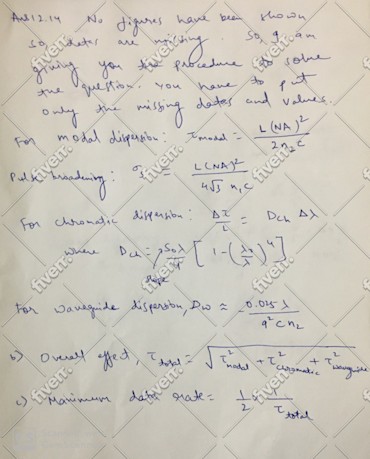 Ans12.14 No figures have been shown
so dates are missing. So, I am
giving you the procedure to solve
the question. You have to put
only the missing dates and values.
For modal dispersion: τmodal = L(NA)² / 2n₂c
Pulse broadening: = L(NA)² / 4√3 n₁c
For chromatic dispersion: Δτ/L = Dch Δλ
where Dch = S₀λ/4 [1-(λ₀/λ)⁴]
slope
For waveguide dispersion, Dw ≈ -0.025 λ / a² c n₂
b) Overall effect, τtotal = √τ²modal + τ²chromatic + τ²waveguide
c) Maximum data rate = 1/2 × 1/τtotal
fiverr.
fiverr.
fiverr.
fiverr.
fiverr.
fiverr.
fiverr.
fiverr.
fiverr.
fiverr.
fiverr.
fiverr.